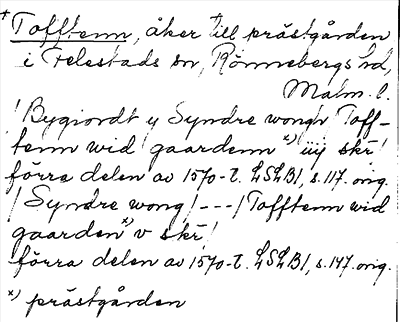 * Tofftenn, åker till prästgården
i Felestads sn, Rönnebergs hd,
Malm. l.
/Bygiordt y Syndre wong/ Toff-
tenn wid gaardenn x) iiij skr!
förra delen av 1570-t. LSLB1, s. 117. orig.
/Syndre wong/---/Tofftenn wid
gaarden x) v skr!
förra delen av 1570-t. LSLB1, s. 147. orig.
x) prästgården